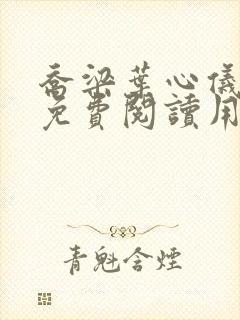 喬梁葉心儀
免費閱讀用
青魁含煙